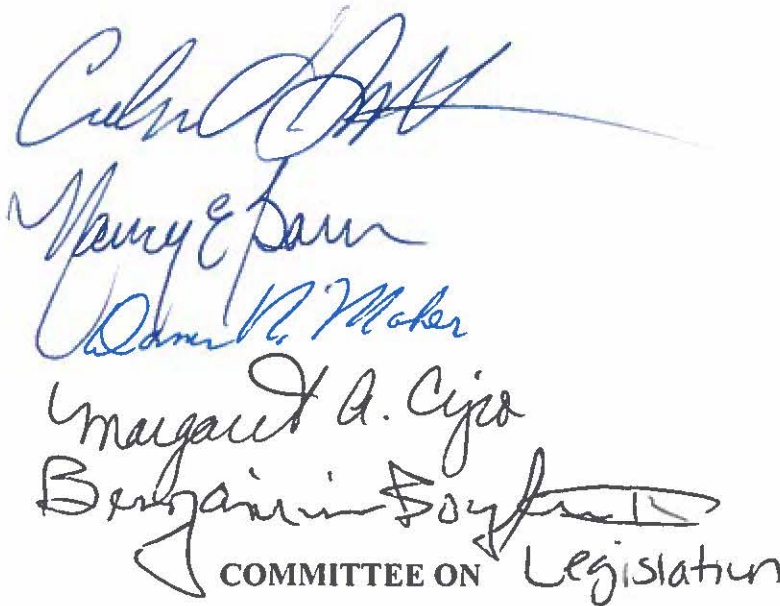 Nancy E Barr
Damon R. Maher
Margaret A. Cunzio
Benjamin Boykin II
COMMITTEE ON Legislation